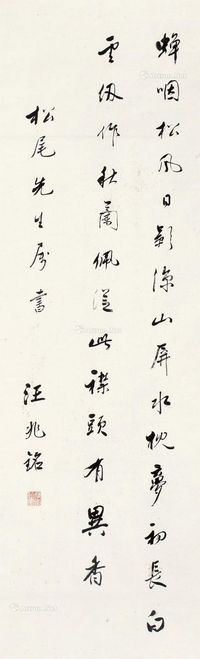 蟬咽松風日影涼山屏水枕夢初長白
雲紉作秋蘭佩從此襟頭有異香
松尾先生屬書
汪兆銘